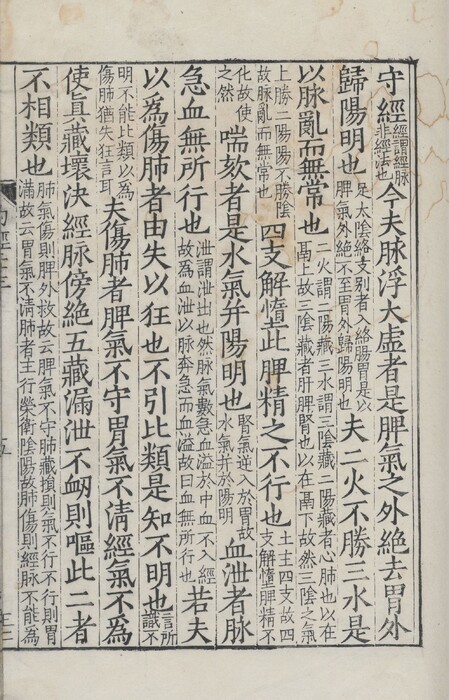 守經經謂經脈非經法也今夫脈浮大虛者是脾氣之外絕去胃外
歸陽明也足太陰絡支別者入絡腸胃是以脾氣外絕不至胃外歸陽明也夫二火不勝三水是
以脈亂而無常也二火謂二陽藏三水謂三陰藏二陽藏者心肺也以在鬲上故三陰藏者肝脾腎也以在鬲下故然三陰之氣
上勝二陽陽不勝陰故脈亂而無常也四支解惰此脾精之不行也土主四支故四支解墯脾精不
化故使之然喘欬者是水氣并陽明也腎氣逆入於胃故水氣並於陽明血泄者脈
急血無所行也泄謂泄出也然脈氣數急血溢於中血不入經故為血泄以脈奔急而血溢故曰血無所行也若夫
以為傷肺者由失以狂也不引比類是知不明也言所識不
明不能比類以為傷肺猶失狂言耳夫傷肺者脾氣不守胃氣不清經氣不為
使眞藏壞決經脈傍絕五藏漏泄不衂則嘔此二者
不相類也肺氣傷則脾外救故云脾氣不守肺藏損則氣不行不行則胃滿故云胃氣不清肺者主行榮衛陰陽故肺傷則經脈不能為